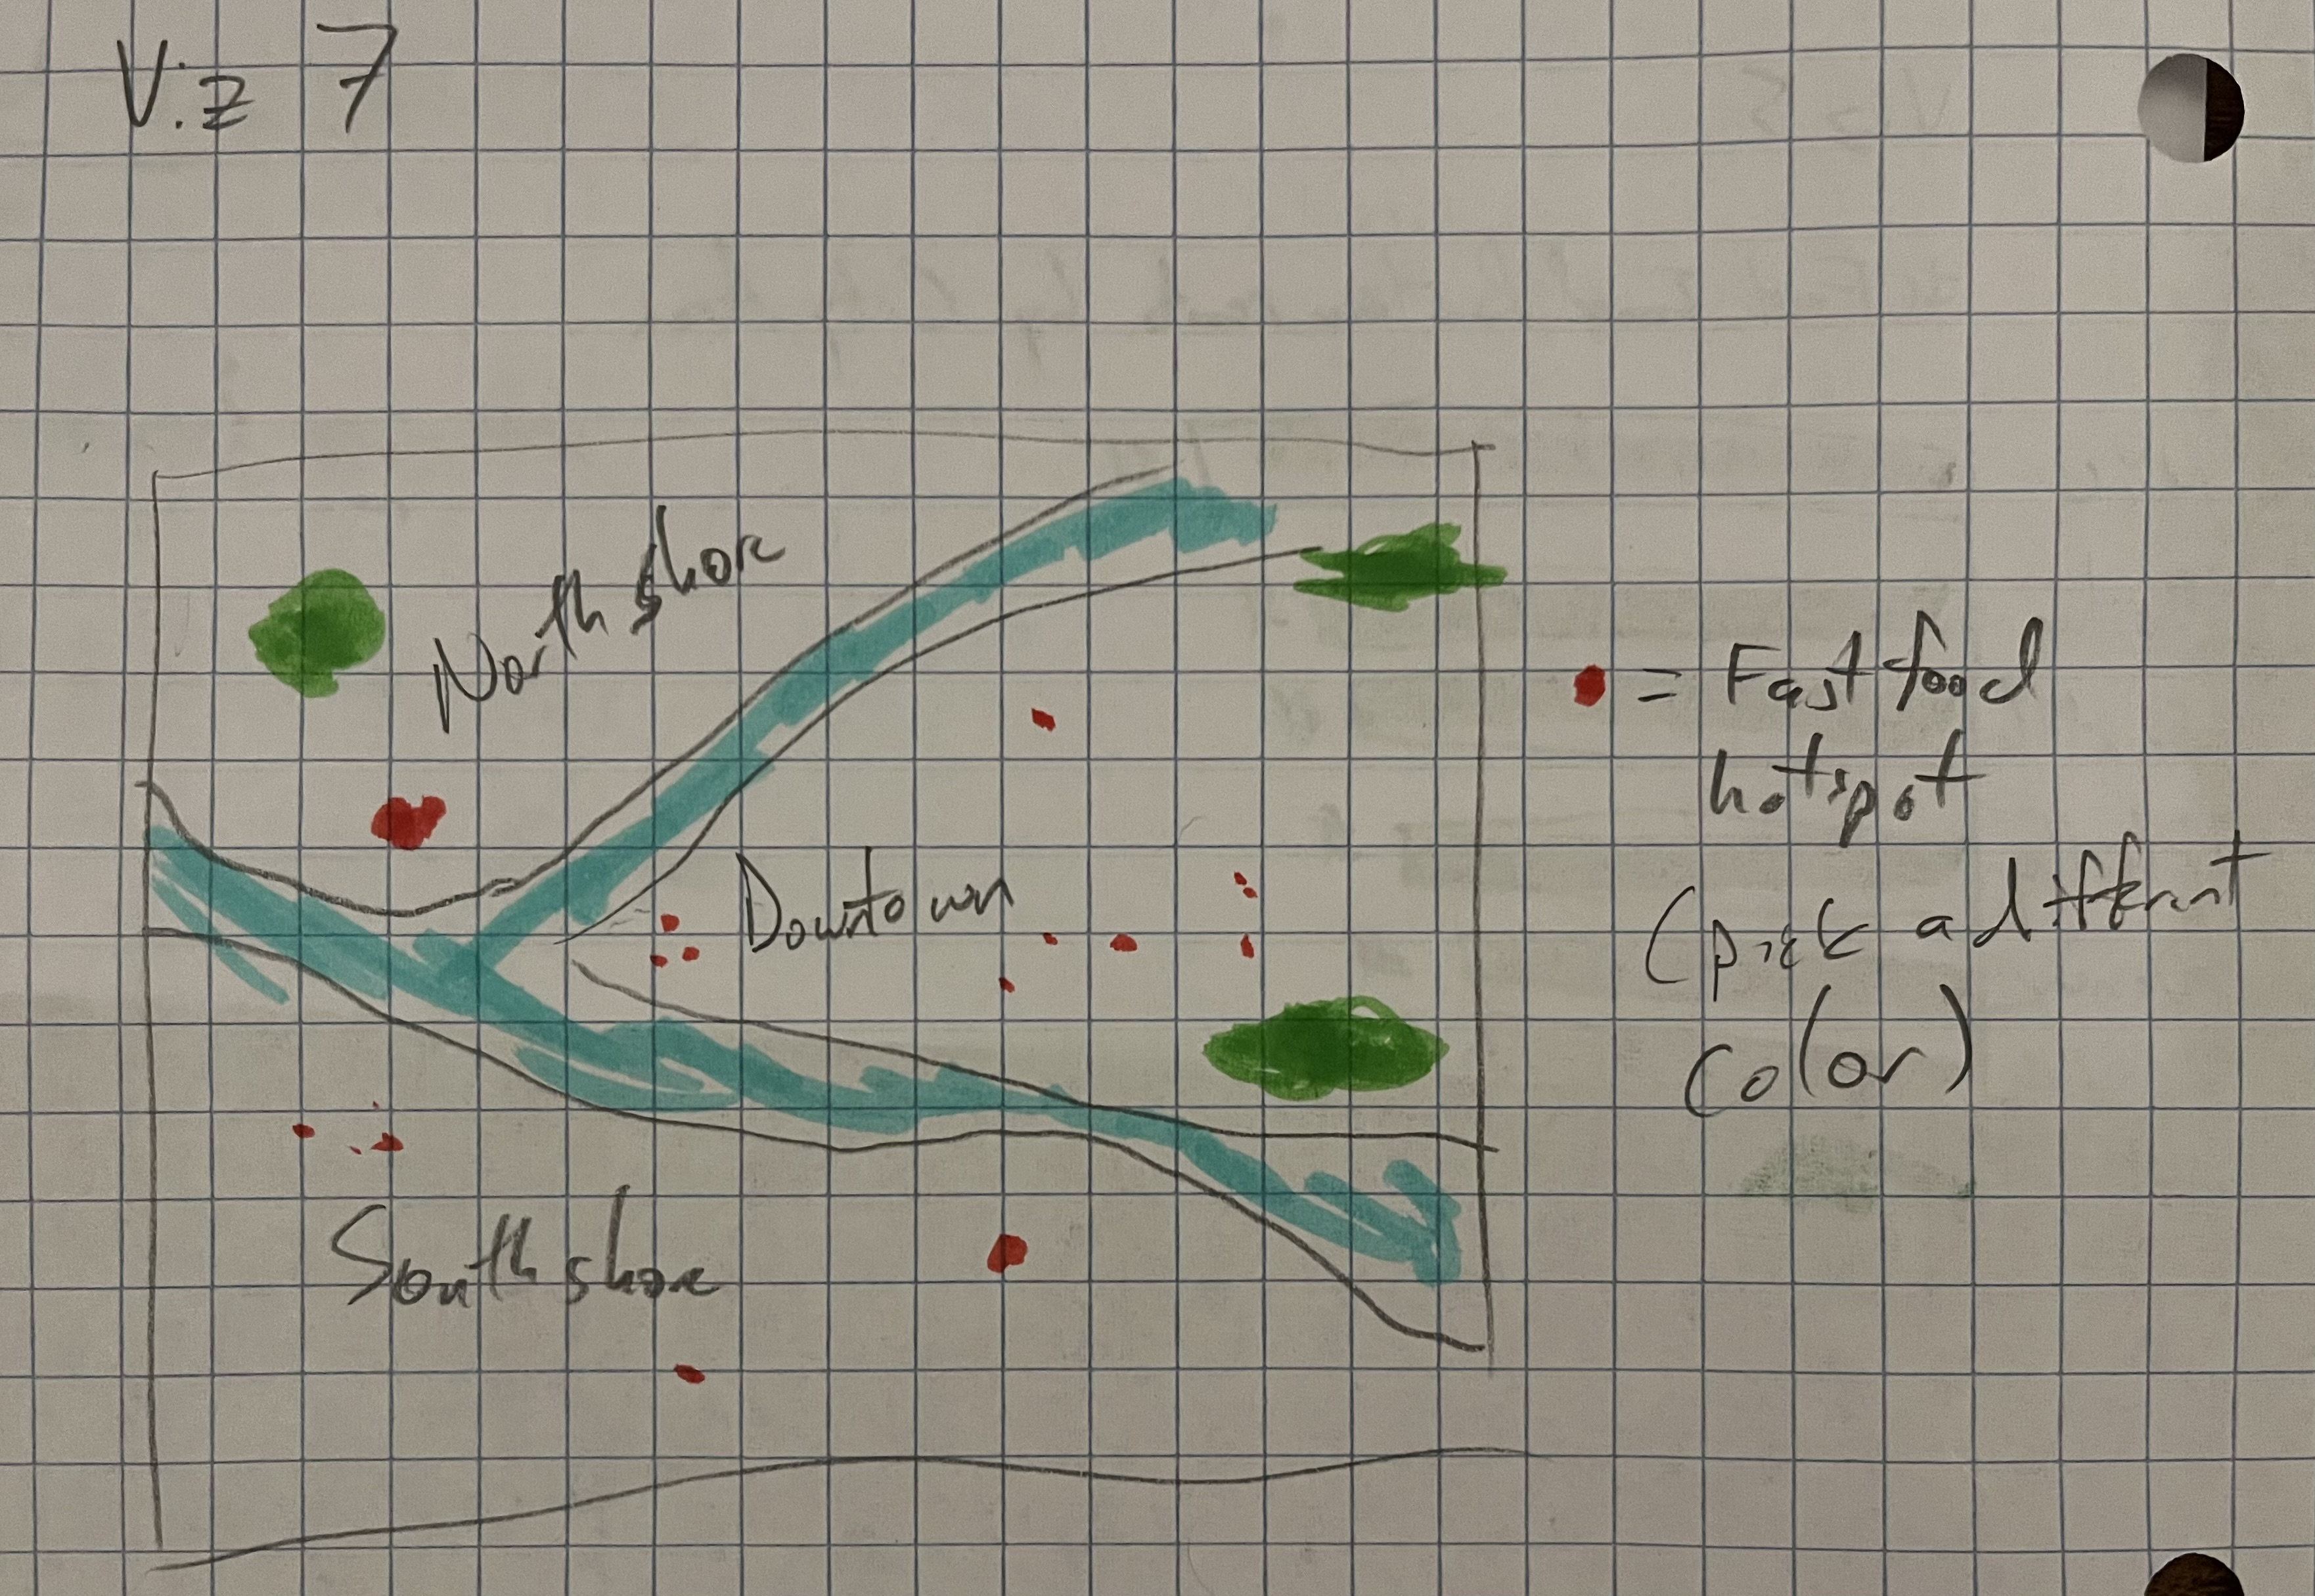 Viz 7
North shore
Downtown
South shore
= Fast food
hotspot
(pick a different
color)